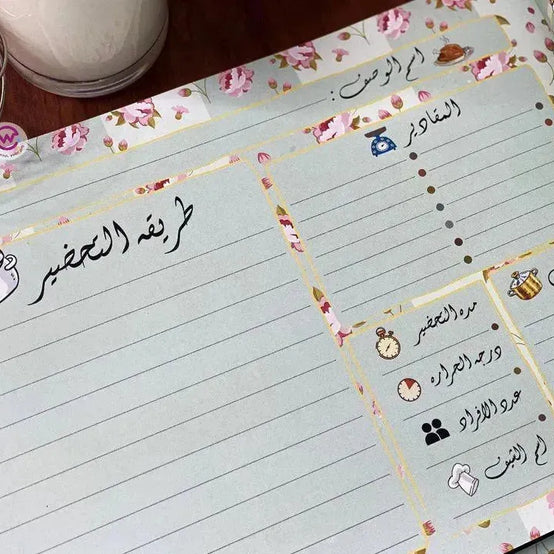 اسم الوصف :
المقادير
طريقه التحضير
مده التحضير
درجه الحراره
عدد الافراد
اسم الشيف